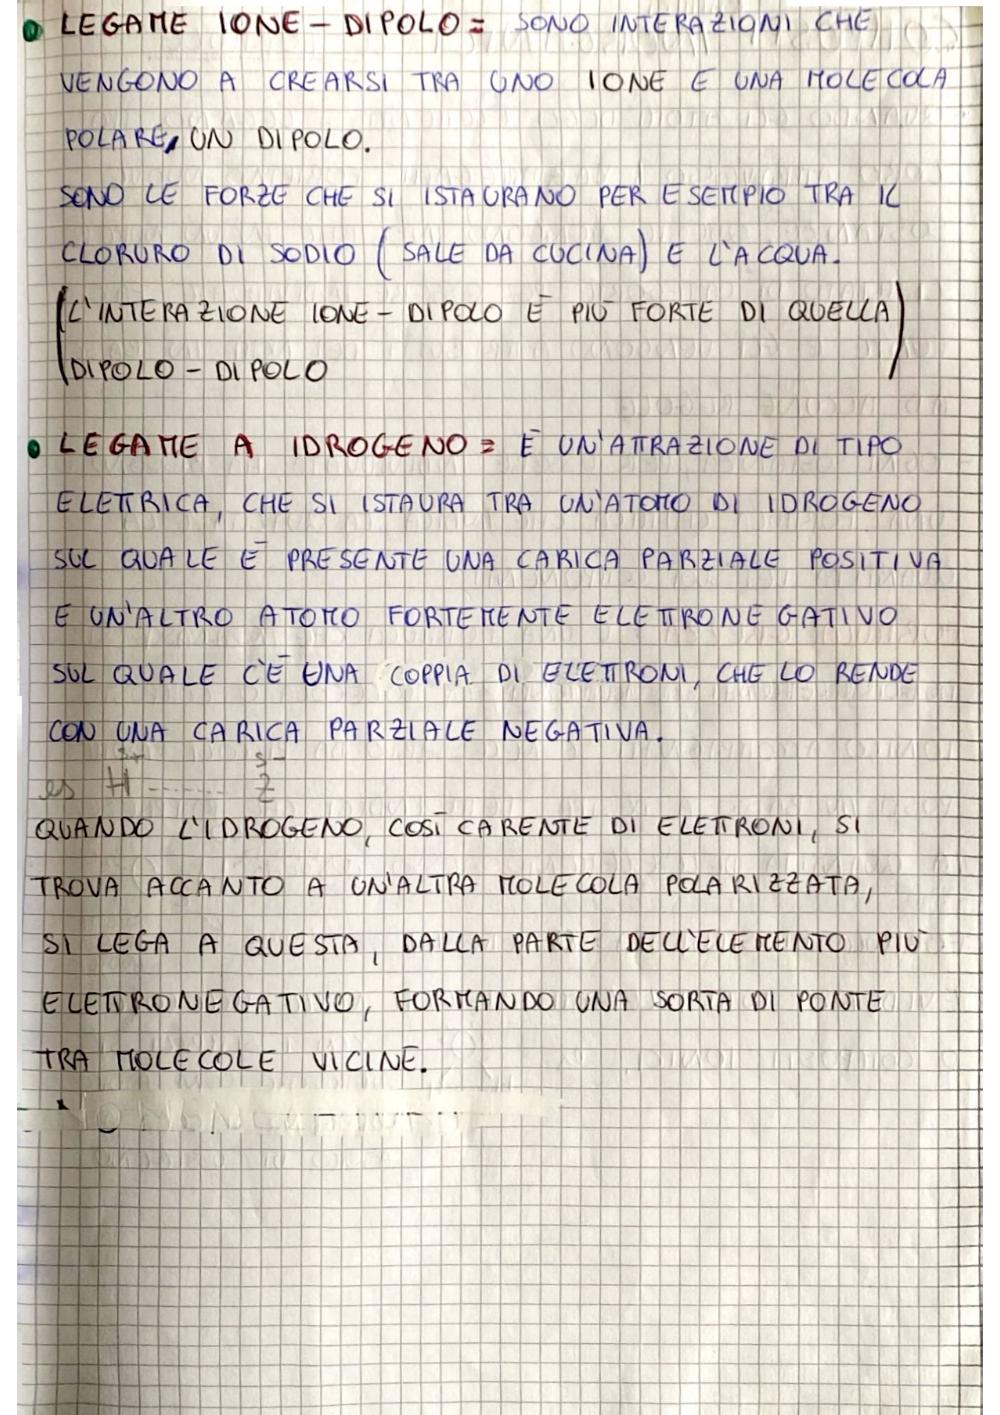 LEGAME IONE - DIPOLO = SONO INTERAZIONI CHE
VENGONO A CREARSI TRA UNO IONE E UNA MOLECOLA
POLARE, UN DIPOLO.
SONO LE FORZE CHE SI ISTAURANO PER ESEMPIO TRA IL
CLORURO DI SODIO (SALE DA CUCINA) E L'ACQUA.
(L'INTERAZIONE IONE - DIPOLO È PIÙ FORTE DI QUELLA)
DIPOLO - DIPOLO
LEGAME A IDROGENO = È UN'ATTRAZIONE DI TIPO
ELETTRICA, CHE SI ISTAURA TRA UN'ATOMO DI IDROGENO
SUL QUALE È PRESENTE UNA CARICA PARZIALE POSITIVA
E UN'ALTRO ATOMO FORTEMENTE ELETTRONEGATIVO
SUL QUALE C'È UNA COPPIA DI ELETTRONI, CHE LO RENDE
CON UNA CARICA PARZIALE NEGATIVA.
δ+ δ-
es H ........ Z
QUANDO L'IDROGENO, COSÌ CARENTE DI ELETTRONI, SI
TROVA ACCANTO A UN'ALTRA MOLECOLA POLARIZZATA,
SI LEGA A QUESTA, DALLA PARTE DELL'ELEMENTO PIÙ
ELETTRONEGATIVO, FORMANDO UNA SORTA DI PONTE
TRA MOLECOLE VICINE.